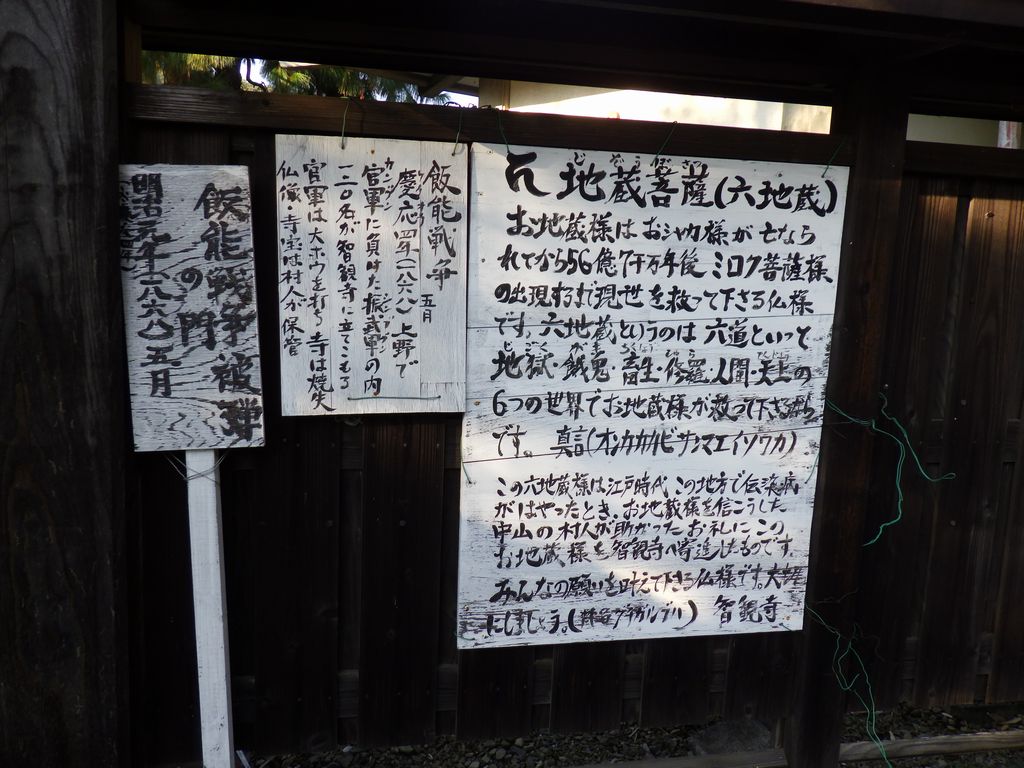 飯能戦争被弾
の門
明治元年(一八六八)五月
飯能戦争
五月
慶応四年(一八六八)上野で
官軍に負けた振武軍の内
カングン
一二〇名が智観寺に立てこもる
官軍は大ホウを打ち寺は焼失
仏像・寺宝は村人が保管
地蔵菩薩(六地蔵)
お地蔵様はおシャカ様が亡なら
れてから56億7千万年後ミロク菩薩様
の出現するまで現世を救って下さる仏様
です。六地蔵というのは六道といって
地獄・餓鬼・畜生・修羅・人間・天上の
6つの世界でお地蔵様が救って下さる
です。真言(オンカカカビサンマエイソワカ)
この六地蔵様は江戸時代この地方で伝染病
がはやったとき、お地蔵様を信こうした
中山の村人が助かったお礼にこの
お地蔵様を智観寺へ寄進したものです。
みんなの願いを叶えて下さる仏様です。大切
にしましょう。 智観寺